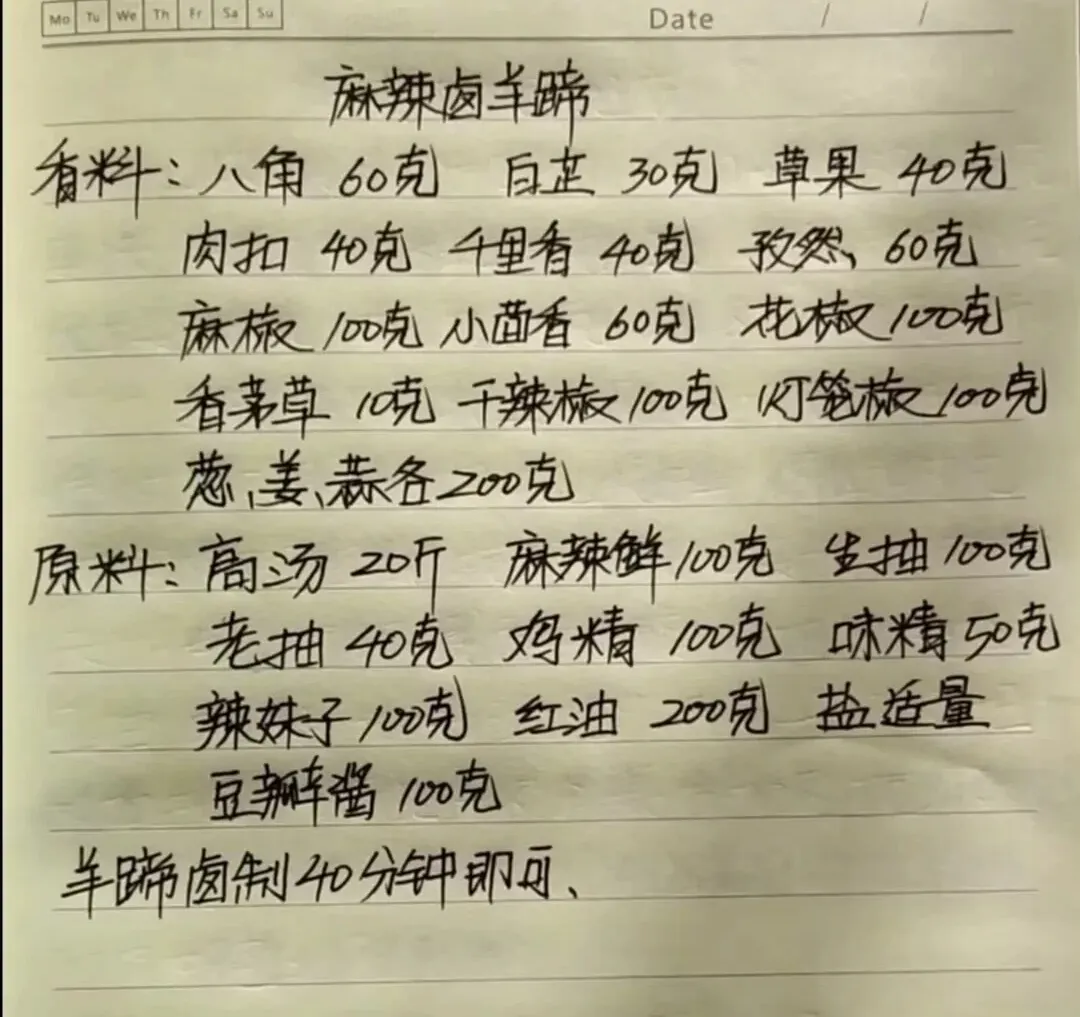 Mo Tu We Th Fr Sa Su Date / /
麻辣卤羊蹄
香料：八角 60克 白芷 30克 草果 40克
肉扣 40克 千里香 40克 孜然、60克
麻椒 100克 小茴香 60克 花椒 100克
香茅草 10克 干辣椒 100克 灯笼椒 100克
葱、姜、蒜各200克
原料：高汤 20斤 麻辣鲜 100克 生抽 100克
老抽 40克 鸡精 100克 味精 50克
辣妹子 100克 红油 200克 盐适量
豆瓣酱 100克
羊蹄卤制40分钟即可、